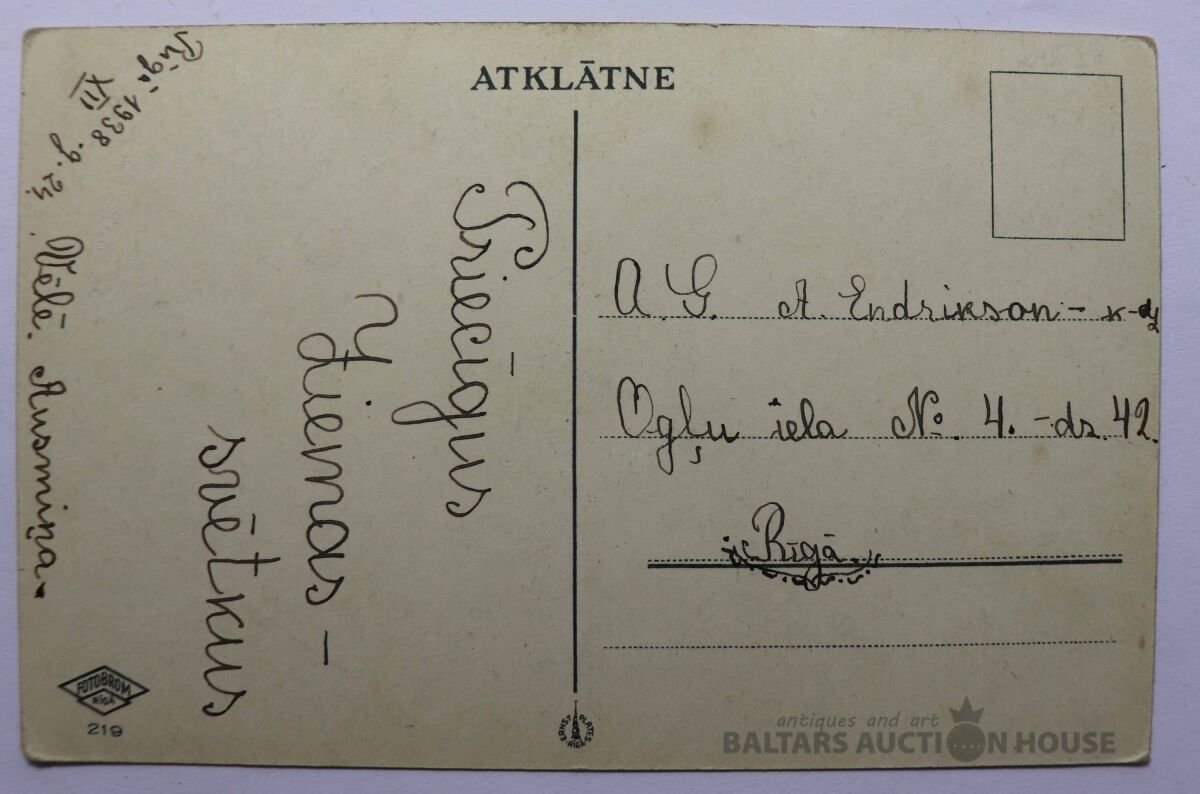 ATKLĀTNE
Rīgā 1938. g. 24
XII
Priecīgus
Ziemas –
svētkus
Vēlē. Ausmiņa.
A. G. A. Endrikson – k-dz
Ogļu iela № 4. – dz. 42.
Rīgā.
FOTOBROM
RĪGĀ
219
ERNST PLATES
RĪGĀ
antiques and art
BALTARS AUCTION HOUSE